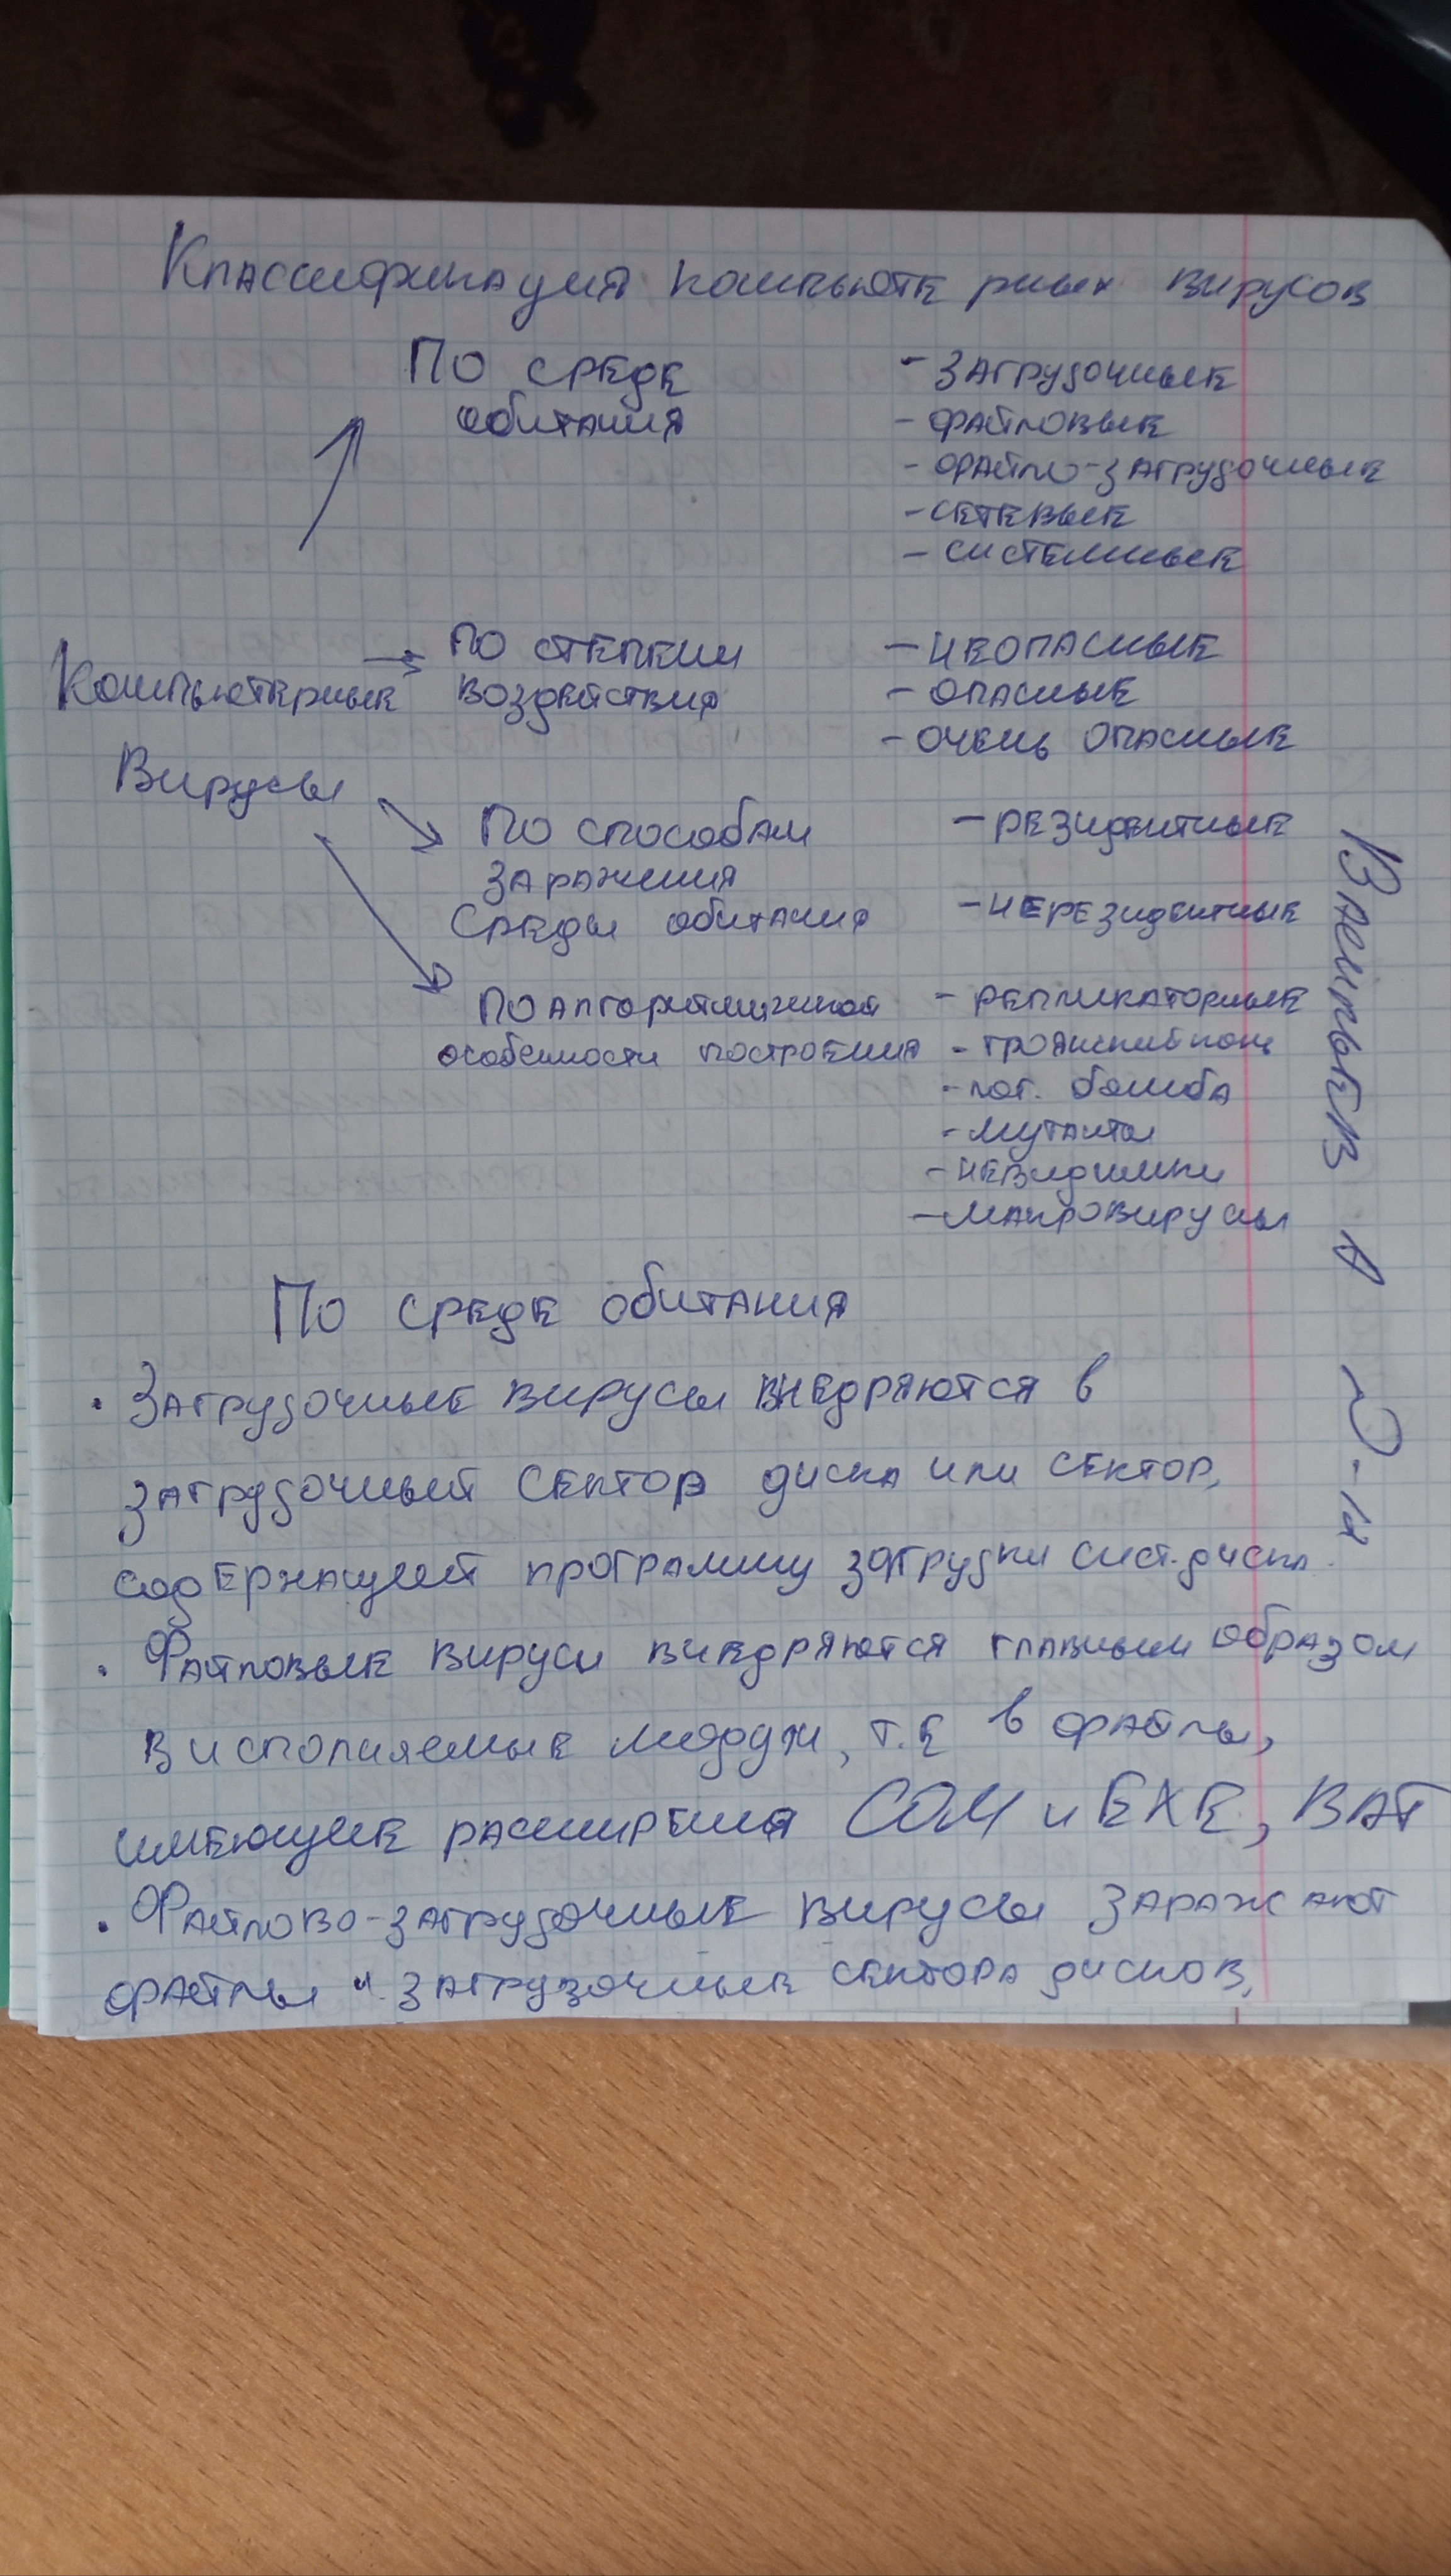 Классификация компьюте рных вирусов
По среде
обитания
- загрузочные
- файловые
- файло-загрузочные
- сетевые
- системные
Компьютерные
Вирусы
по степени
воздействия
- неопасные
- опасные
- очень опасные
По способам
заражения
Среды обитания
- резидентные
- нерезидентные
По алгоритмической
особенности построения
- репликаторные
- троянский конь
- лог. бомба
- мутанты
- невидимки
- макровирусы
По среде обитания
· Загрузочные вирусы внедряются в
загрузочный сектор диска или сектор,
содержащий программу загрузки сист.диска.
· Файловые вирусы внедряются главным образом
в исполняемые модули, т.е в файлы,
имеющие расширения COM и EXE, BAT
· Файлово-загрузочные вирусы заражают
файлы и загрузочные сектора дисков,
А